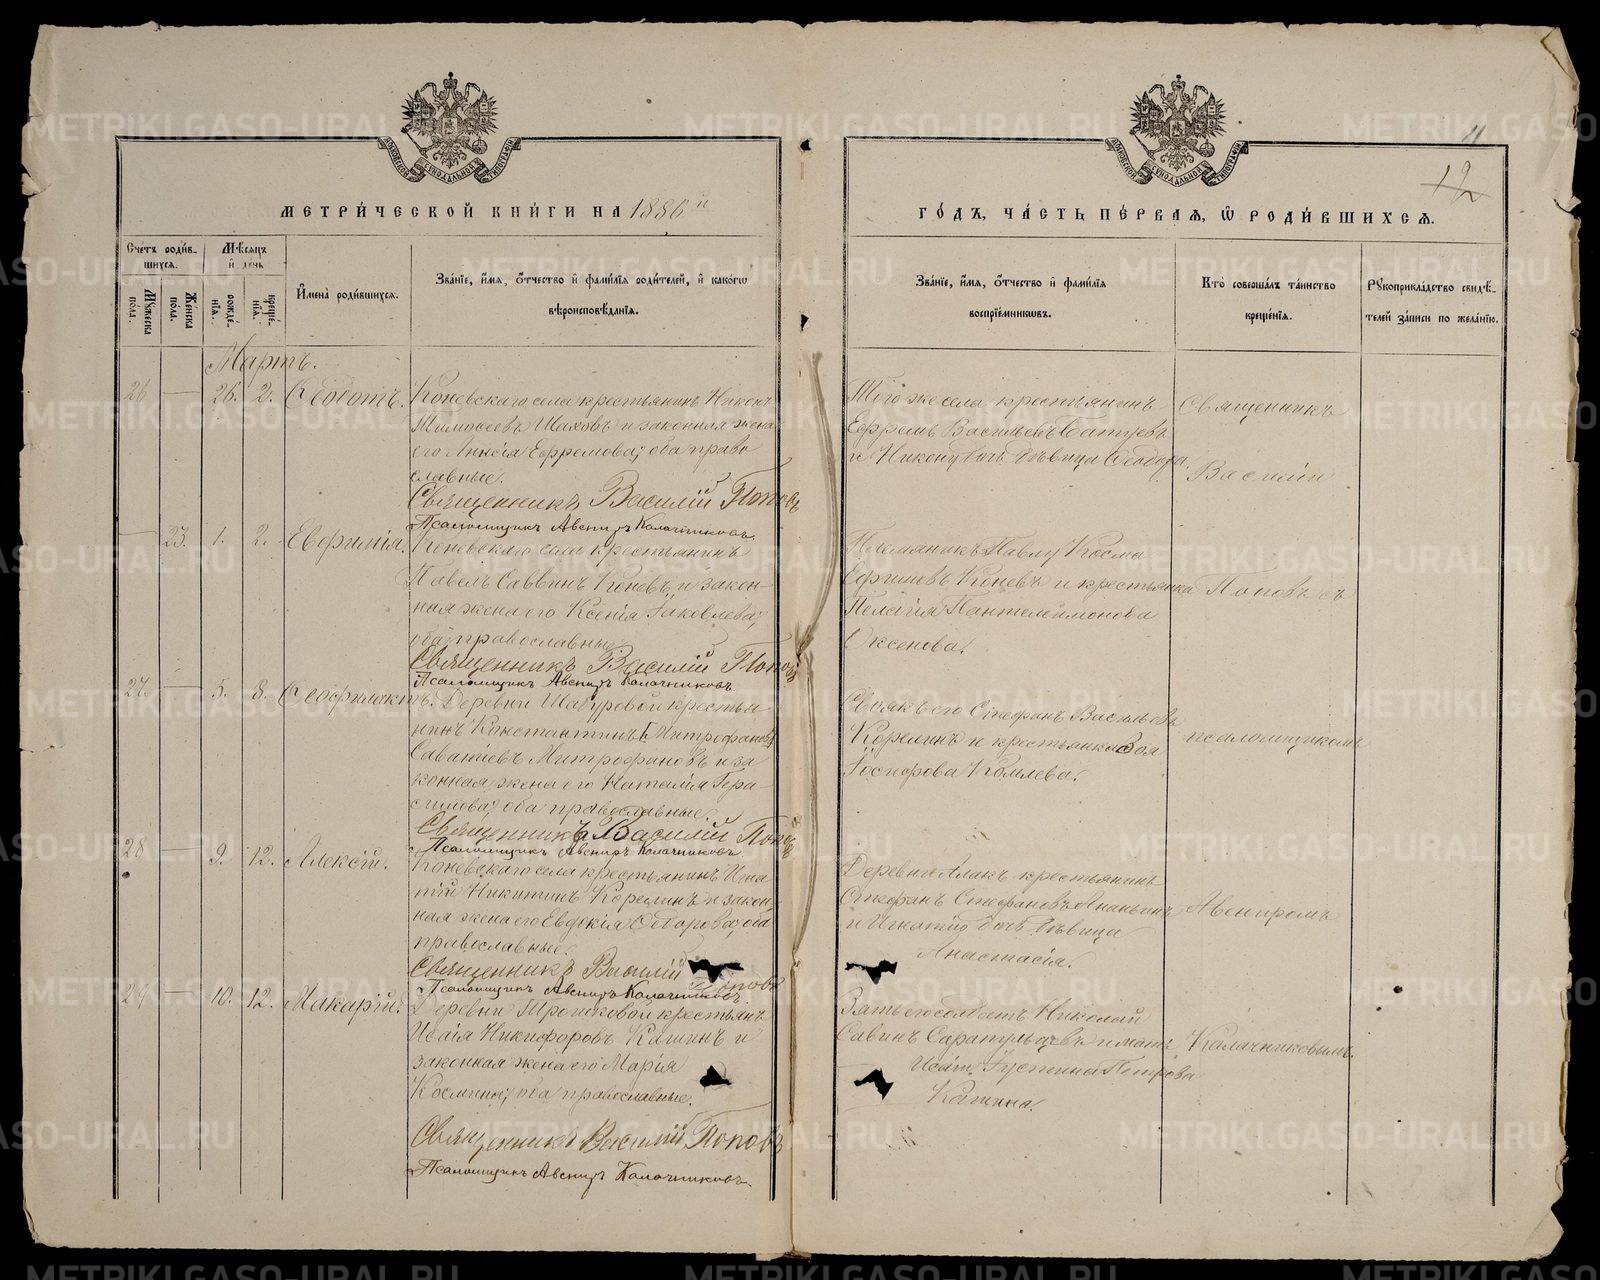 11
12
МЕТРИ́ЧЕСКОЙ КНИ́ГИ НА 1886 й
ГО́ДЪ, ЧА́СТЬ ПЕ́РВАЯ, Ѡ РОДИ́ВШИХСЯ.
Сче́тъ роди́в-
шихся.
Мꙋжеска по́ла.
Же́нска по́ла.
Мѣ́сяцъ
и҆ день
рожде́нїя.
креще́нїя.
И҆мена̀ роди́вшихся.
Зва́нїе, и҆́мя, ѻ҆́тчество и҆ фами́лїя роди́телей, и҆ како́гѡ
вѣроисповѣ́данїя.
Зва́нїе, и҆́мя, ѻ҆́тчество и҆ фами́лїя
воспрїе́мникѡвъ.
Кто̀ соверша́лъ та́инство
креще́нїя.
Рꙋкоприкла́дство свидѣ́-
телей за́писи по жела́нїю.
Мартъ.
26 — 26. 2. Ѳеодотъ.
Коневскаго села крестьянинъ Никонъ
Тимофеевъ Шаховъ и законная жена
его Анисія Ефремова; оба право
славные.
Священникъ Василій Поповъ
Псаломщикъ Авениръ Калачниковъ.
Того же села крестьянинъ
Ефремъ Васильевъ
и Никон дочь дѣвица Ѳеодора.
— 23. 1. 2. Евфимія.
Коневскаго села крестьянинъ
Павелъ Саввинъ Коневъ и закон-
ная жена его Ксенія Іаковлева;
оба православные.
Священникъ Василій Поповъ
Псаломщикъ Авениръ Калачниковъ.
Племянникъ Павлу Косма
Ефимовъ Коневъ и крестьянка
Пелагія Пантелеимонова
Оксенова.
27. — 5. 8. Ѳеофилактъ.
Деревни Шайтуровой крестья
нинъ Константинъ [Митрофановъ]
Саватіевъ Митрофановъ и за
конная жена его Наталія Гера
симова; оба православные.
Священникъ Василій Поповъ
Псаломщикъ Авениръ Калачниковъ.
Своякъ его Стефанъ Васильевъ
Корелинъ и крестьянка Зоя
Іосифова Комлева.
28 — 9. 12. Алексій.
Коневскаго села крестьянинъ Игна
тій Никитинъ Корелинъ и закон
ная жена его Евдокія Ѳеодорова; оба
православные.
Священникъ Василій Поповъ
Псаломщикъ Авениръ Калачниковъ.
Деревни Алакъ крестьянинъ
Стефанъ Стефановъ Ананьинъ
и Игнатію дочь дѣвица
Анастасія.
29 — 10. 12. Макарій.
Деревни Трошковой крестьян
Исаія Никифоровъ Кашинъ и
законная жена его Марія
Космина; оба православные.
Священникъ Василій Поповъ
Псаломщикъ Авениръ Калачниковъ.
Зять его солдатъ Николай
Савинъ Сарапульцевъ и мать
Исаіи Іустина Петрова
Кашина.
Священникъ
Василій
Поповъ съ
псаломщикомъ
Авениромъ
Калачниковымъ.
METRIKI.GASO-URAL.RU